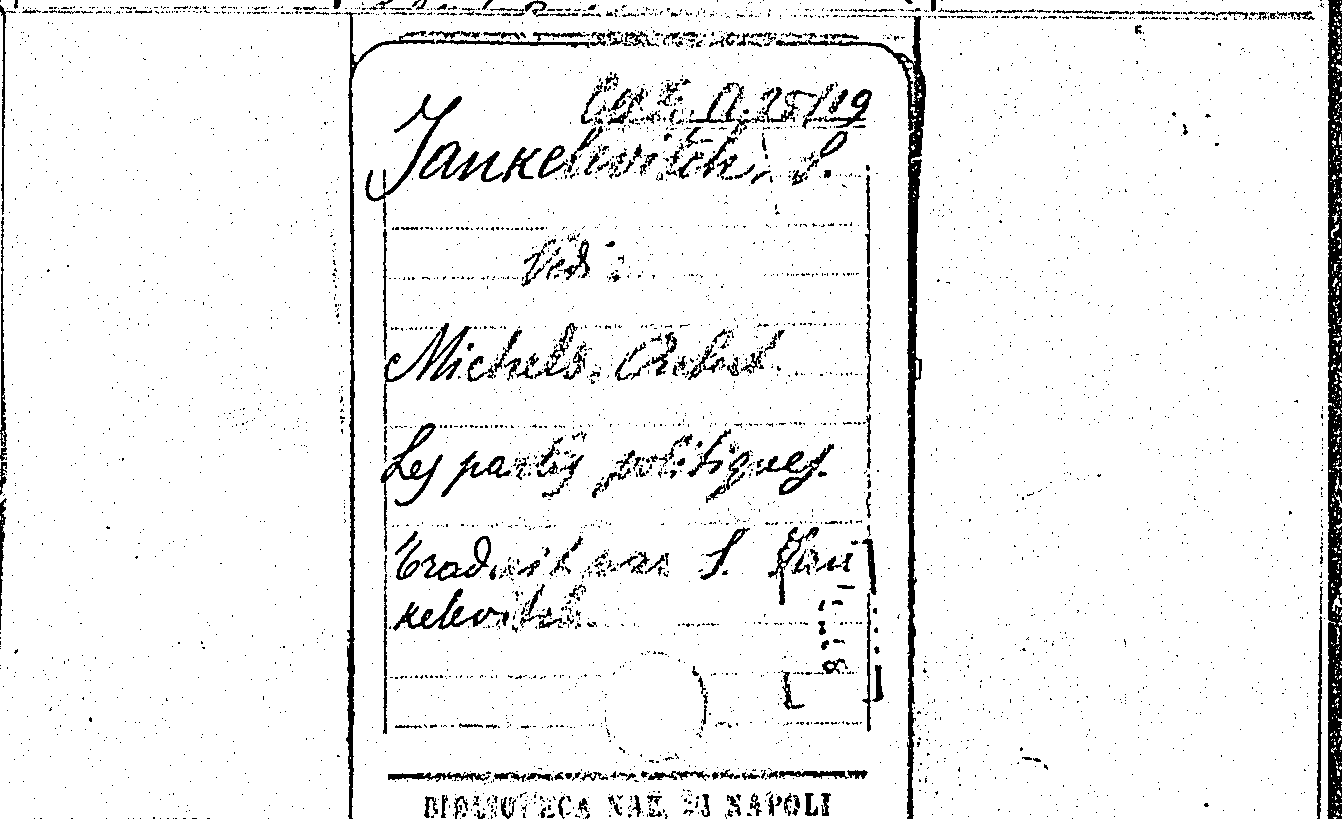 A. 25/19
Jankelevitch, S.
Vedi:
Michels, Robert.
Les partis politiques.
Traduit par S. Jan
kelevitch.
BIBLIOTECA NAZ. DI NAPOLI